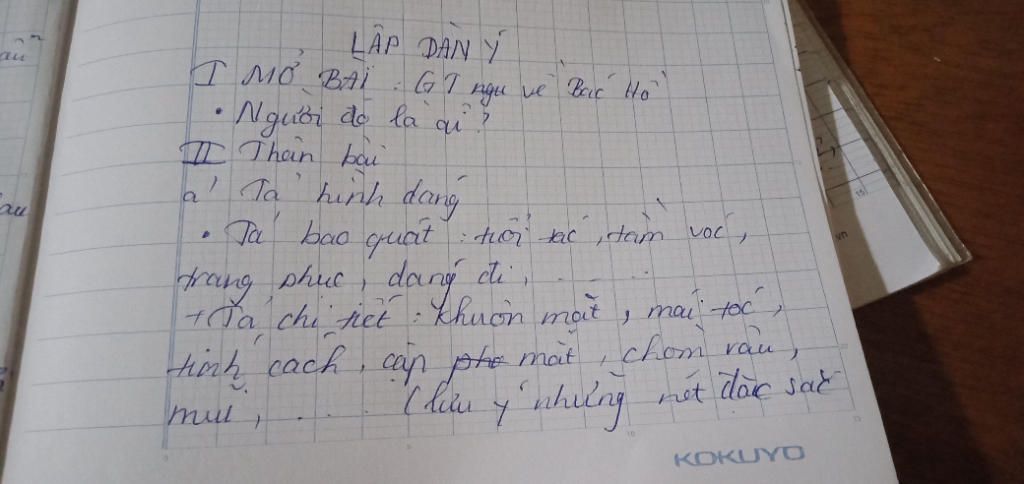 LẬP DÀN Ý
I MỞ BÀI : GT ngu về Bác Hồ
• Người đó là ai?
II Thân bài
a' Tả hình dáng
• Tả bao quát : tuổi tác, tầm vóc,
trang phục, dáng đi, .....
+ Tả chi tiết : khuôn mặt, mái tóc,
tính cách, cặp mắt, chòm râu,
mũi, ..... (lưu ý những nét đặc sắc
KOKUYO
au
vn